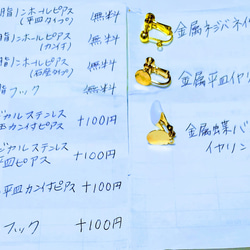 脂ノンホールピアス 無料
(平皿タイプ)
脂ノンホールピアス 無料
(カン付)
脂ノンホールピアス 無料
(石座タイプ)
脂フック 無料
ジカルステンレス
カン付ピアス +100円
ジカルステンレス
平皿ピアス +100円
平皿カン付ピアス +100円
フック +100円
金属ネジバネイヤ
金属平皿イヤリ
金属蝶バ
イヤリン